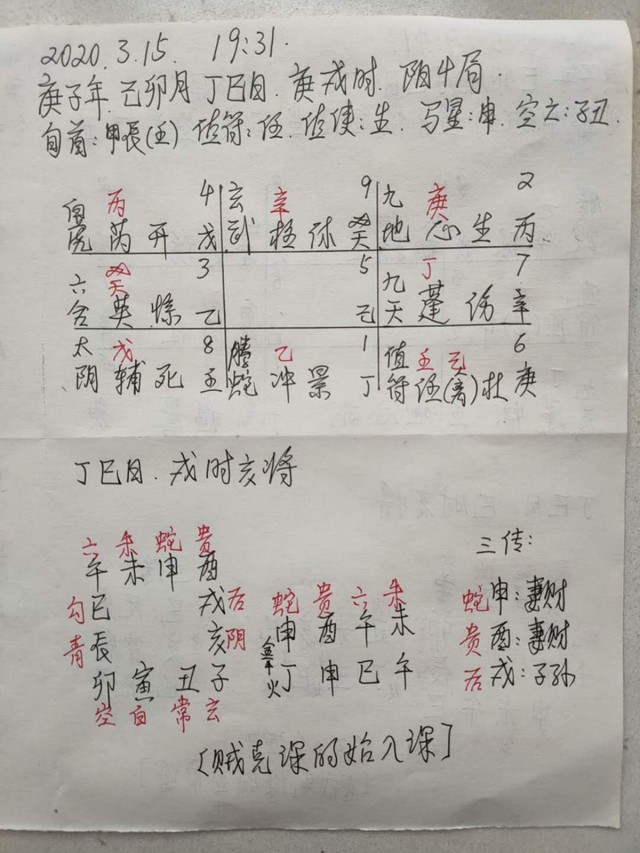 2020.3.15. 19:31.
庚子年.己卯月 丁巳日.庚戌时.阴4局.
旬首:甲辰(壬) 值符:任.值使:生.马星:申.空亡:子丑.
白 丙 4 玄 辛 9 九 庚 2
虎 芮 开 戊 武 柱 休 癸 地 心 生 丙
六 癸 3 5 九 丁 7
合 英 惊 乙 己 天 蓬 伤 辛
太 戊 8 腾 乙 1 值 壬 己 6
阴 辅 死 壬 蛇 冲 景 丁 符 任(禽)杜 庚
丁巳日.戌时亥将
六 朱 蛇 贵
午 未 申 酉
勾 巳 戌 后
青 辰 亥 阴
卯 寅 丑 子
空 白 常 玄
蛇 贵 六 朱
申 酉 午 未
丁 申 巳 午
火
三传:
蛇 申:妻财
贵 酉:妻财
后 戌:子孙
[贼克课的始入课]